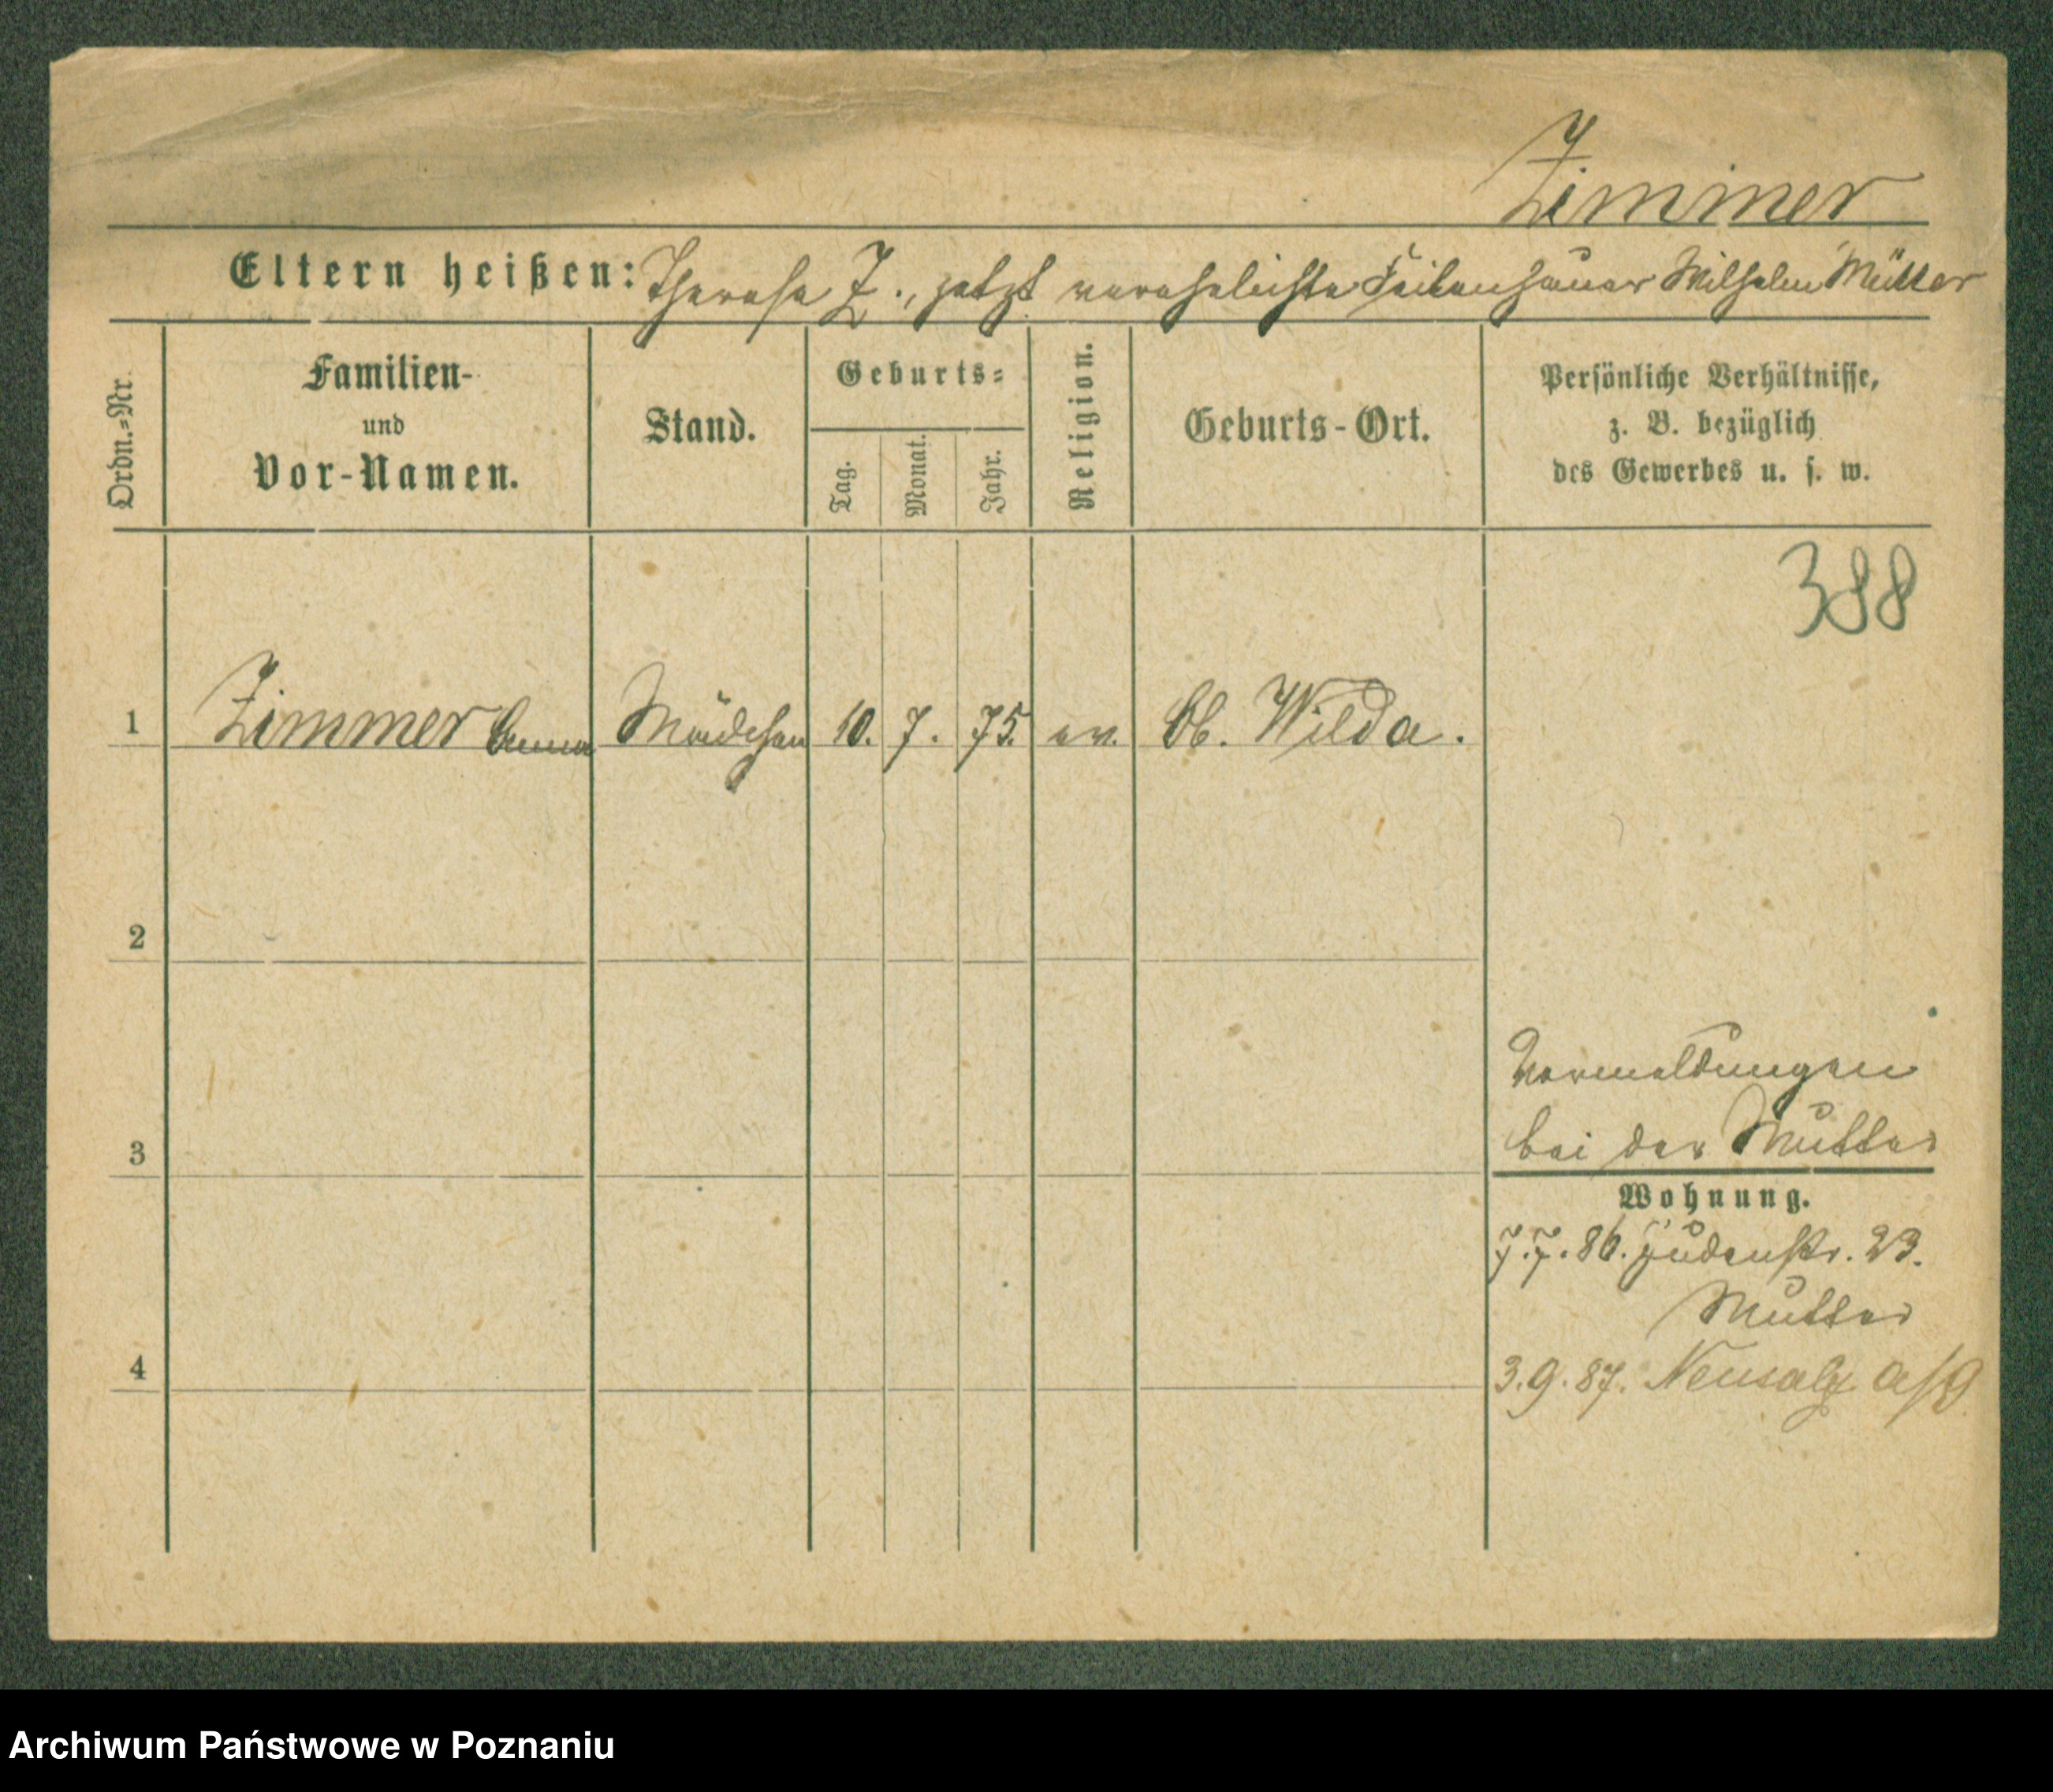 Zimmer
Eltern heißen: Therese Z., jetzt verehelichte Feilenhauer Wilhelm Müller
Ordn.-Nr.
Familien-
und
Vor-Namen.
Stand.
Geburts-
Tag.
Monat.
Jahr.
Religion.
Geburts-Ort.
Persönliche Verhältnisse,
z. B. bezüglich
des Gewerbes u. s. w.
388
1 Zimmer Anna Mädchen 10. 7. 75. ev. Ob. Wilda.
2
3
4
Vormeldungen
bei der Mutter
Wohnung.
7.7.86. Judenstr. 23.
Mutter
3.9.87. Neusalz a/O
Archiwum Państwowe w Poznaniu